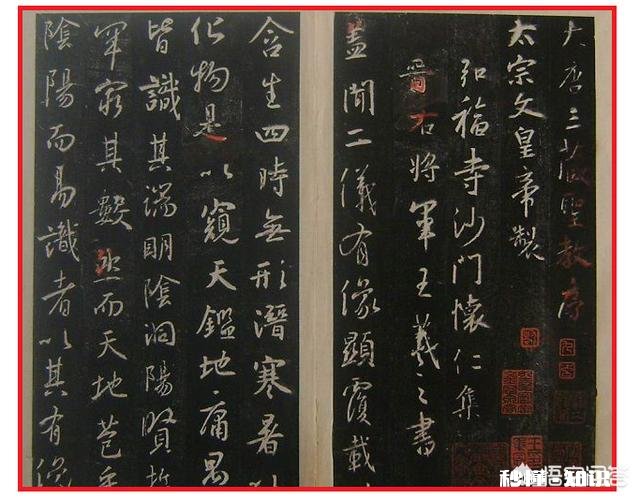 大唐三藏聖教序
太宗文皇帝製
弘福寺沙門懷仁集
晉右將軍王羲之書
蓋聞二儀有像顯覆載
含生四時無形潛寒暑以
化物是以窺天鑑地庸愚
皆識其端明陰洞陽賢哲
罕窮其數然而天地苞乎
陰陽而易識者以其有像
悟空问答